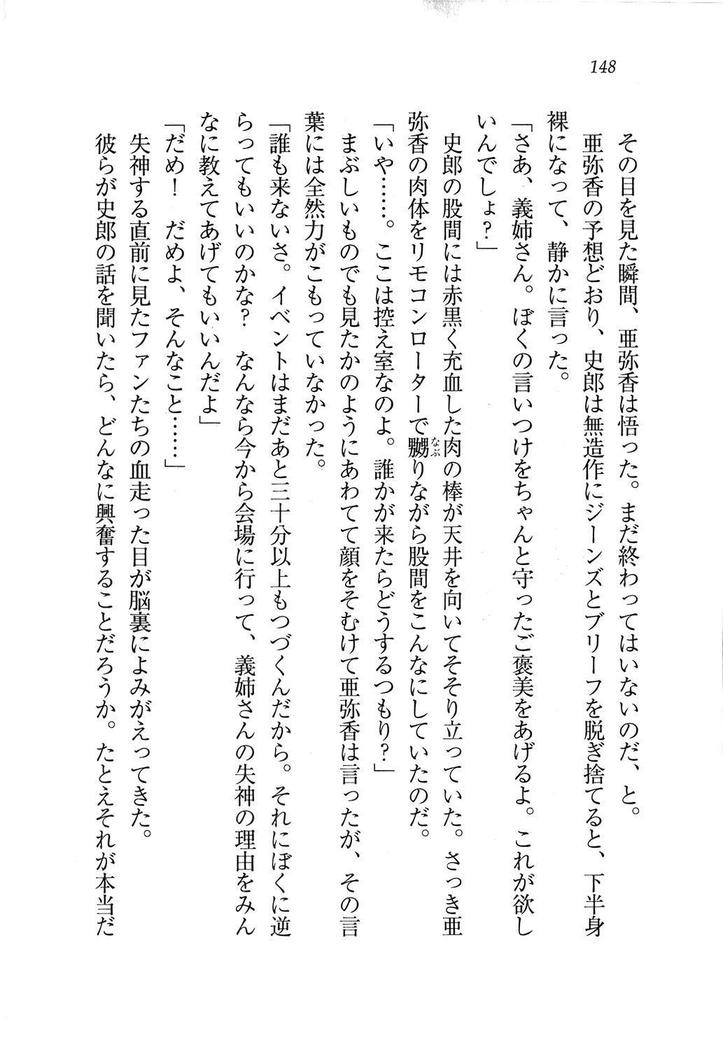 148
その目を見た瞬間、亜弥香は悟った。まだ終わってはいないのだ、と。
亜弥香の予想どおり、史郎は無造作にジーンズとブリーフを脱ぎ捨てると、下半身
裸になって、静かに言った。
「さあ、義姉さん。ぼくの言いつけをちゃんと守ったご褒美をあげるよ。これが欲し
いんでしょ？」
史郎の股間には赤黒く充血した肉の棒が天井を向いてそそり立っていた。さっき亜
弥香の肉体をリモコンローターで嬲りながら股間をこんなにしていたのだ。
なぶ
「いや……。ここは控え室なのよ。誰かが来たらどうするつもり？」
まぶしいものでも見たかのようにあわてて顔をそむけて亜弥香は言ったが、その言
葉には全然力がこもっていなかった。
「誰も来ないさ。イベントはまだあと三十分以上もつづくんだから。それにぼくに逆
らってもいいのかな？　なんなら今から会場に行って、義姉さんの失神の理由をみん
なに教えてあげてもいいんだよ」
「だめ！　だめよ、そんなこと……」
失神する直前に見たファンたちの血走った目が脳裏によみがえってきた。
彼らが史郎の話を聞いたら、どんなに興奮することだろうか。たとえそれが本当だ